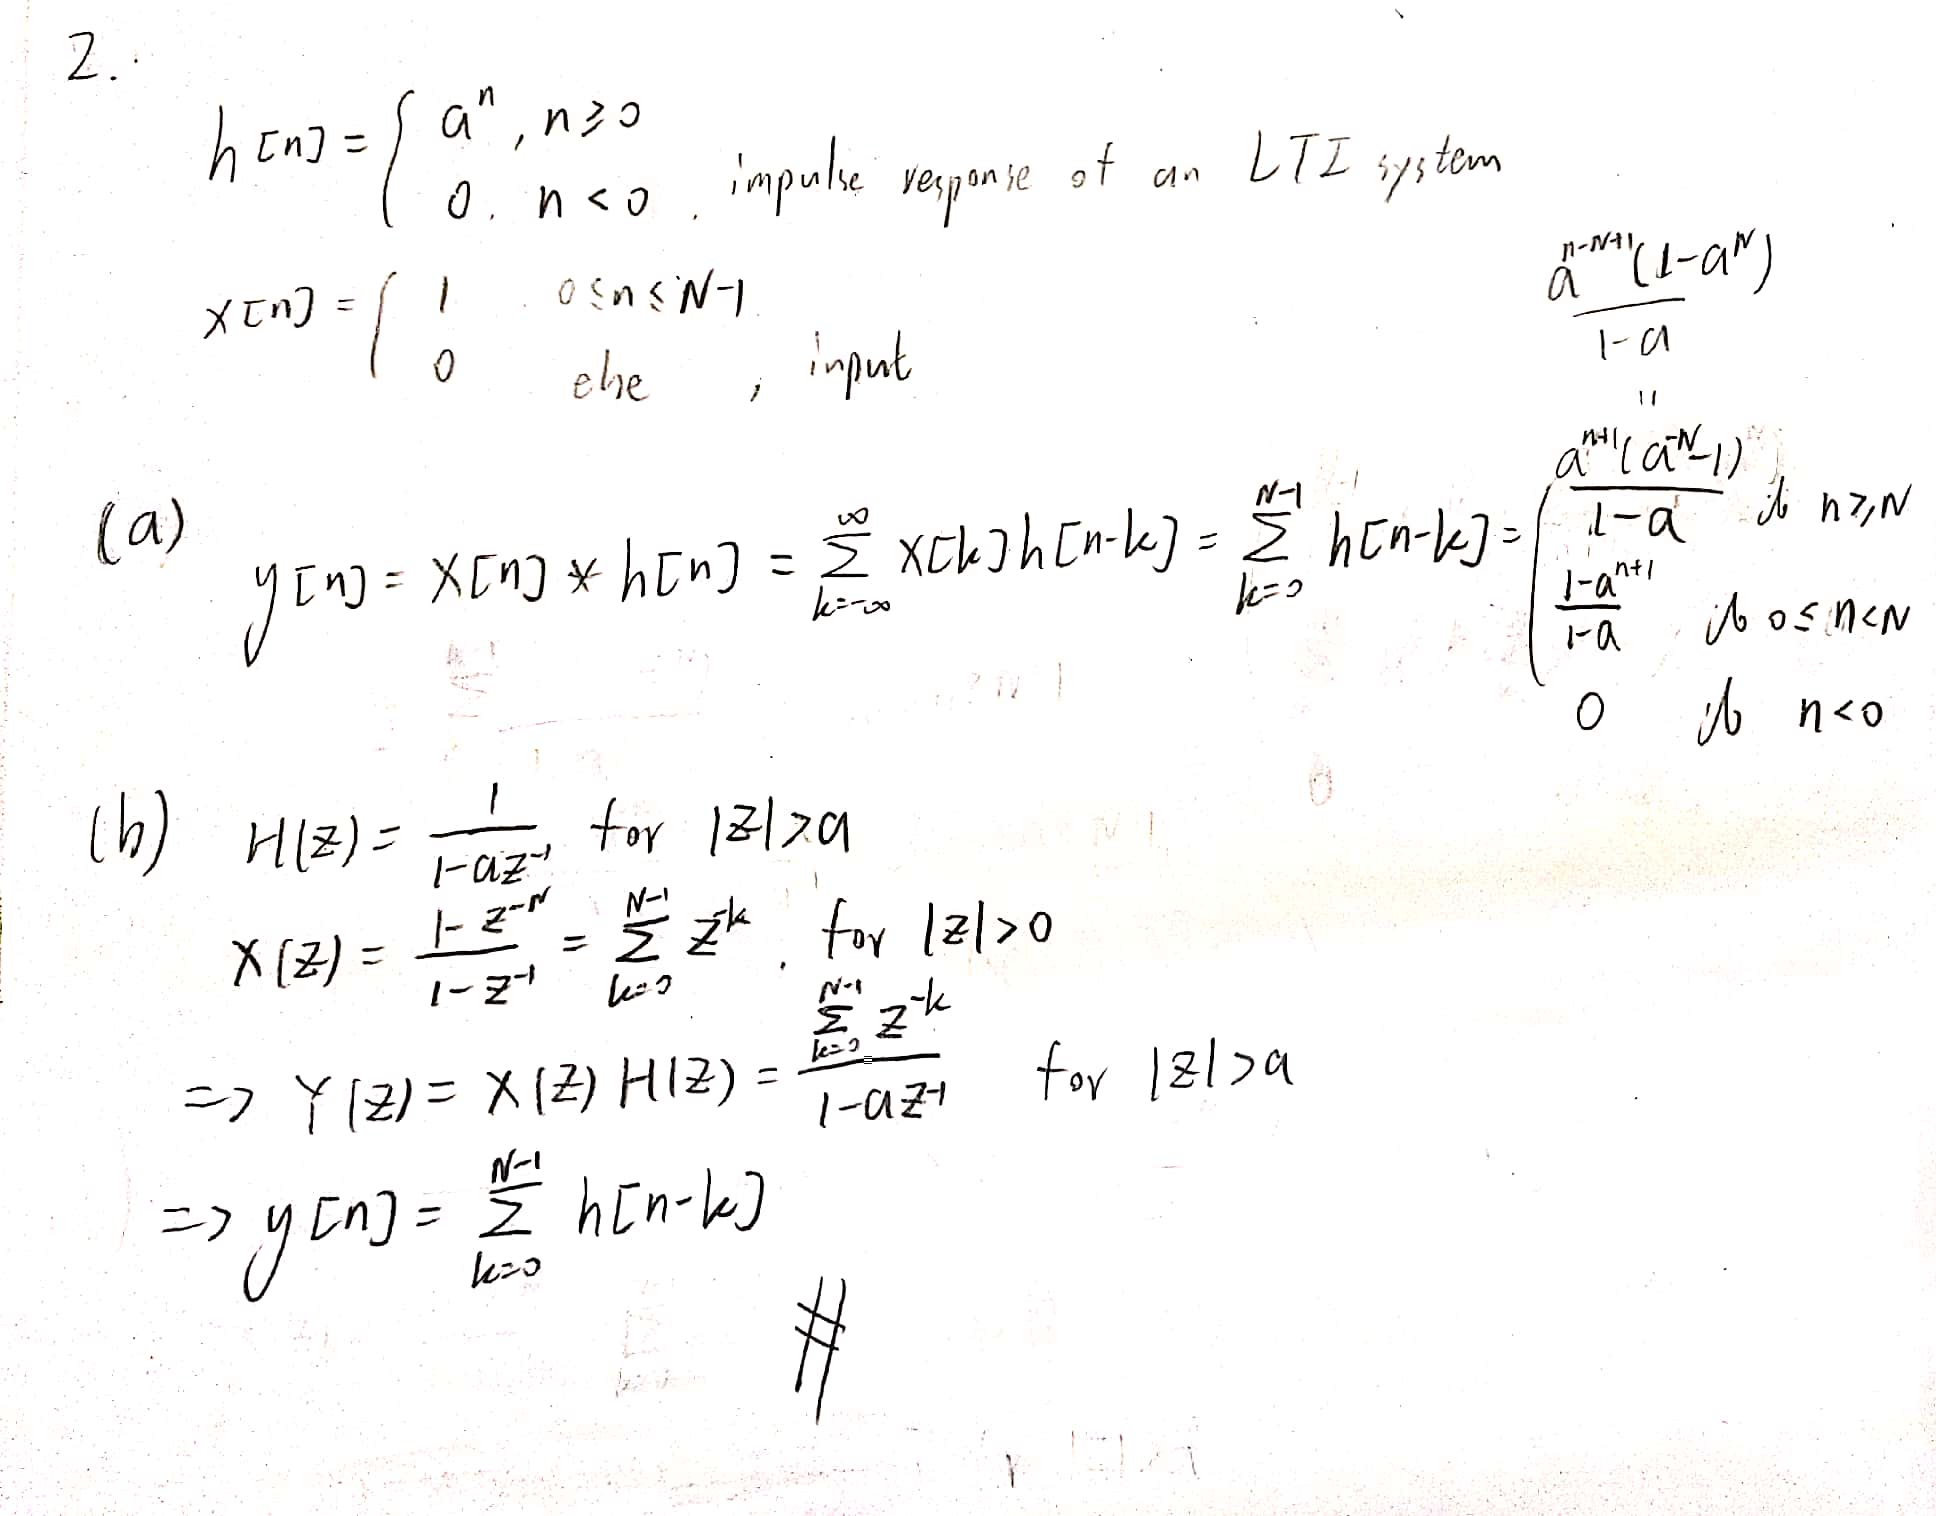 2.
h[n] = { a^n , n≥0
0, n<0 , impulse response of an LTI system
x[n] = { 1 , 0≤n≤N-1
0 else , input
a^{n-N+1}(1-a^N)
1-a
"
(a) y[n] = x[n] * h[n] = Σ_{k=-∞}^{∞} x[k]h[n-k] = Σ_{k=0}^{N-1} h[n-k] = { a^{n+1}(a^{-N}-1) / 1-a if n≥N
1-a^{n+1} / 1-a , if 0≤n<N
0 if n<0
(b) H(z) = 1 / 1-az^{-1} for |z|>a
X(z) = 1-z^{-N} / 1-z^{-1} = Σ_{k=0}^{N-1} z^{-k} , for |z|>0
=> Y(z) = X(z) H(z) = Σ_{k=0}^{N-1} z^{-k} / 1-az^{-1} for |z|>a
=> y[n] = Σ_{k=0}^{N-1} h[n-k]
#